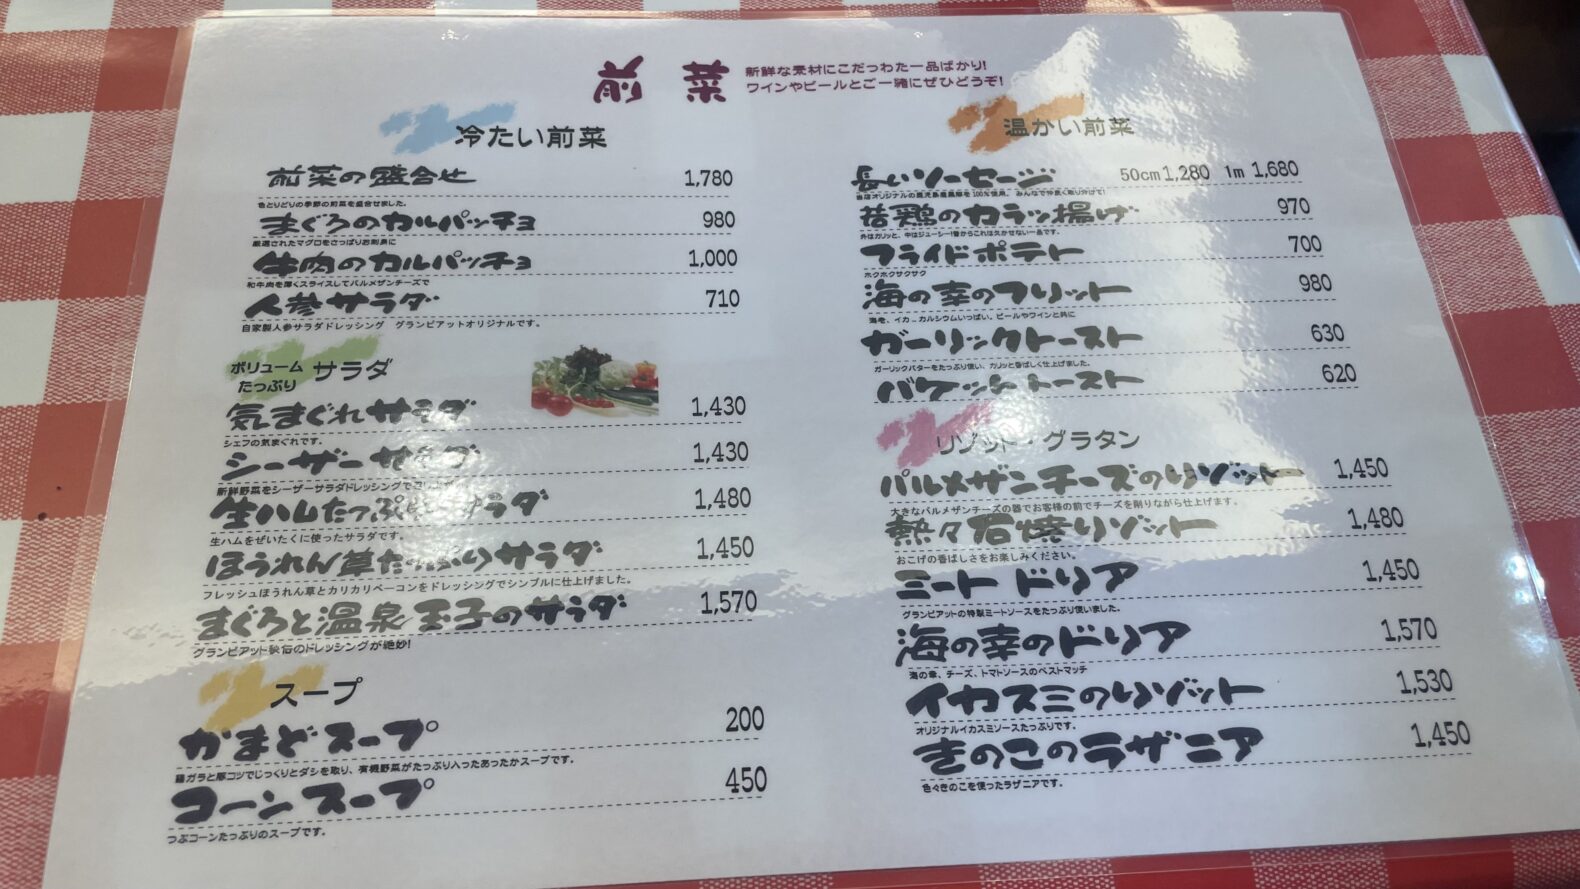 前菜
新鮮な素材にこだっわた一品ばかり!
ワインやビールとご一緒にぜひどうぞ!
冷たい前菜
前菜の盛合せ 1,780
色とりどりの季節の前菜を盛合せました。
まぐろのカルパッチョ 980
厳選されたマグロをさっぱりお刺身に
牛肉のカルパッチョ 1,000
和牛肉を薄くスライスしてパルメザンチーズで
人参サラダ 710
自家製人参サラダドレッシング グランピアットオリジナルです。
ボリュームたっぷり サラダ
気まぐれサラダ 1,430
シェフの気まぐれです。
シーザーサラダ 1,430
新鮮野菜をシーザーサラダドレッシングで
生ハムたっぷりサラダ 1,480
生ハムをぜいたくに使ったサラダです。
ほうれん草たっぷりサラダ 1,450
フレッシュほうれん草とカリカリベーコンをドレッシングでシンプルに仕上げました。
まぐろと温泉玉子のサラダ 1,570
グランピアット秘伝のドレッシングが絶妙!
スープ
かまどスープ 200
鶏ガラと豚コツでじっくりとダシを取り、有機野菜がたっぷり入ったあったかスープです。
コーンスープ 450
つぶコーンたっぷりのスープです。
温かい前菜
長いソーセージ 50cm1,280 1m 1,680
当店オリジナルの鹿児島産黒豚を100%使用。みんなで仲良く取り分けて!
若鶏のカラッ揚げ 970
外はカリッと、中はジューシー!昔からこれは欠かせない一品です。
フライドポテト 700
ホクホクサクサク
海の幸のフリット 980
海老、イカ…カルシウムいっぱい。ビールやワインと共に
ガーリックトースト 630
ガーリックバターをたっぷり使い、カリッと香ばしく仕上げました。
バケットトースト 620
リゾット・グラタン
パルメザンチーズのリゾット 1,450
大きなパルメザンチーズの器でお客様の前でチーズを削りながら仕上げます。
熱々石焼リゾット 1,480
おこげの香ばしさをお楽しみください。
ミートドリア 1,450
グランピアットの特製ミートソースをたっぷり使いました。
海の幸のドリア 1,570
海の幸、チーズ、トマトソースのベストマッチ
イカスミのリゾット 1,530
オリジナルイカスミソースたっぷりです。
きのこのラザニア 1,450
色々きのこを使ったラザニアです。